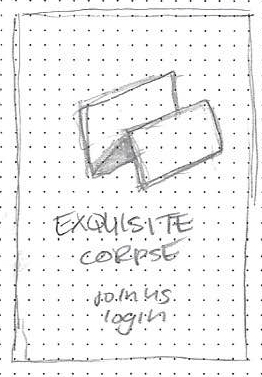 EXQUISITE
CORPSE
join us
login